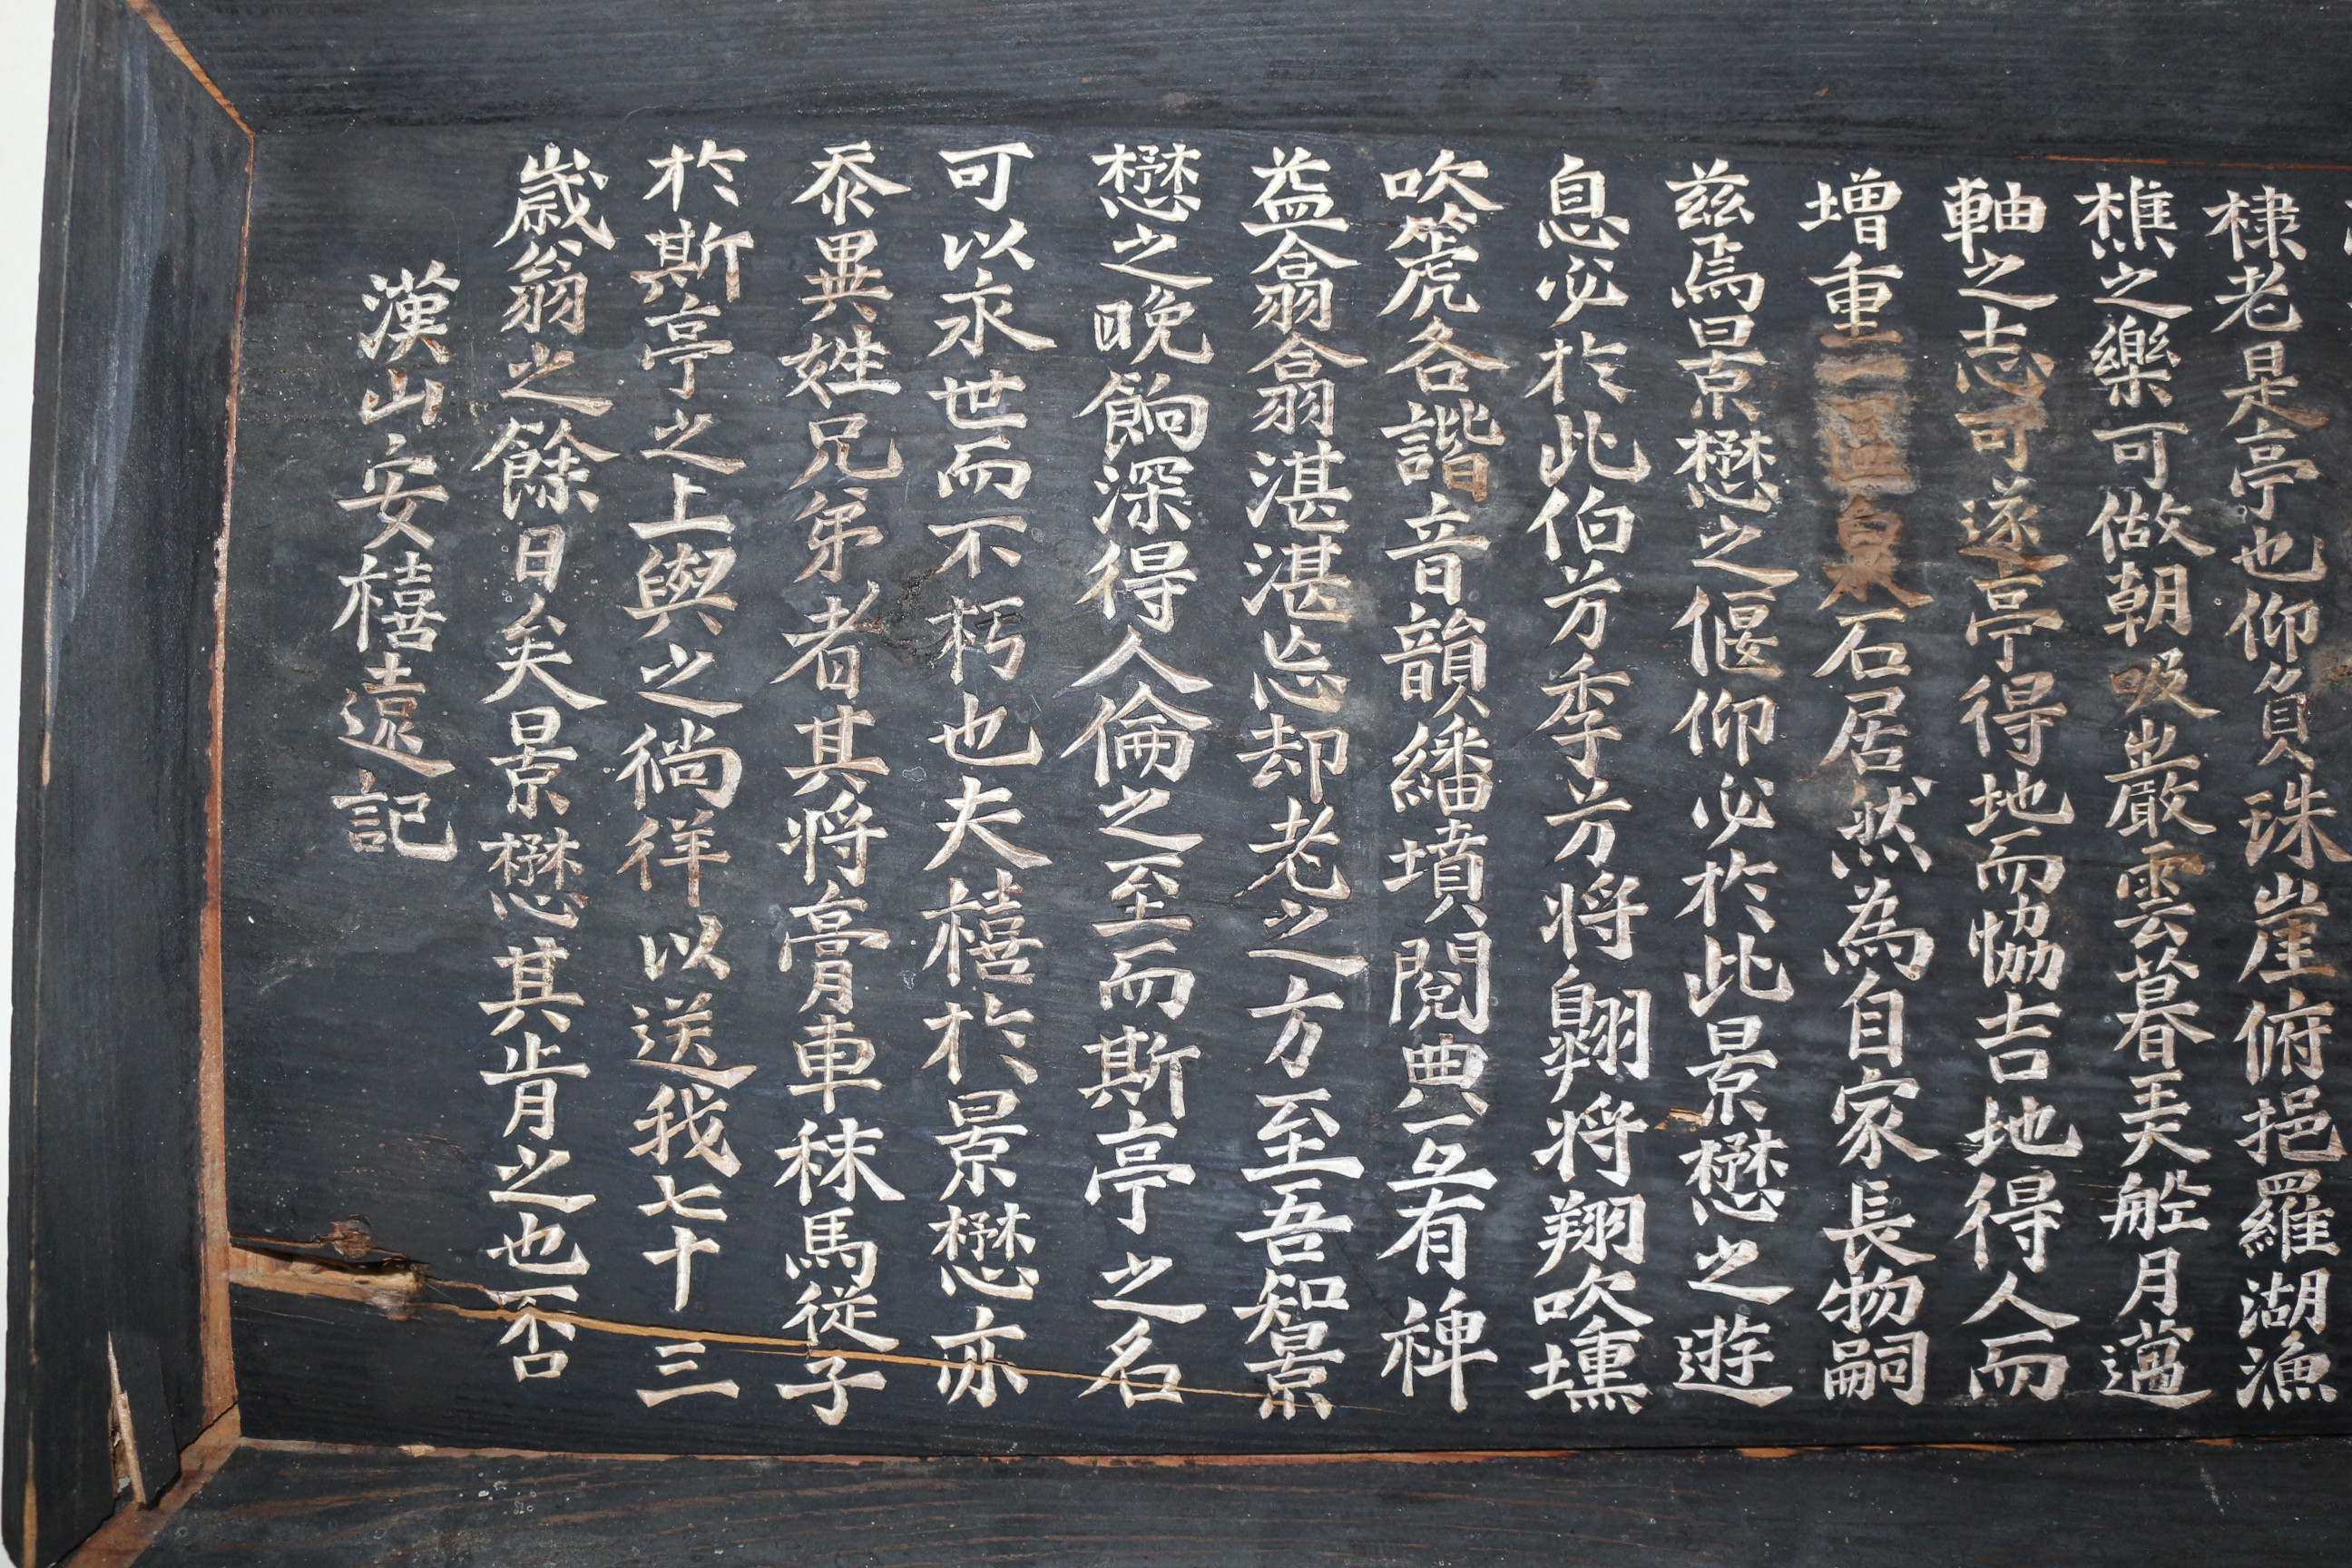 棣老是亭也仰負珠崖俯挹羅湖漁
樵之樂可做朝吸巖雲暮美船月薖
軸之志可遂亭得地而恊吉地得人而
增重一區泉石居然為自家長物嗣
兹焉景懋之偃仰必於此景懋之遊
息必於此伯芳季芳将翺将翔吹壎
吹箎各諧音韻繙墳閱典互有裨
益翕翕湛湛忘却老之方至吾知景
懋之晚餉深得人倫之至而斯亭之名
可以永世而不朽也夫禧於景懋亦
忝異姓兄弟者其将膏車秣馬從子
於斯亭之上與之徜徉以送我七十三
歲翁之餘日矣景懋其肯之也否
漢山安禧遠記